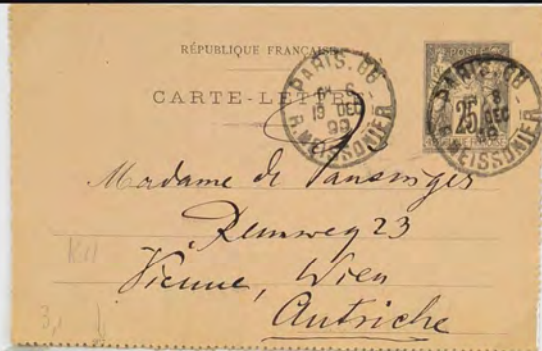 RÉPUBLIQUE FRANÇAISE
CARTE-LETTRE
PARIS. 66
19 DEC
99
R. MEISSONIER
POSTES
25
PARIS. 66
8
DEC
R. MEISSONIER
Madame de
Rennweg 23
Vienne, Wien
Autriche